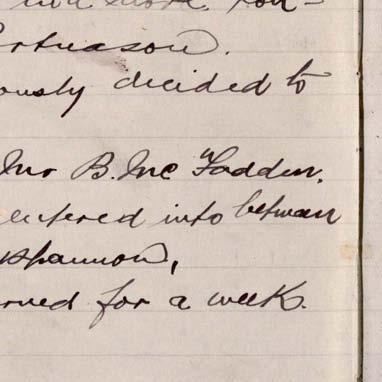 ously decided to
Mr B. Mc Fadden.
entered into between
Shannon,
rved for a week.